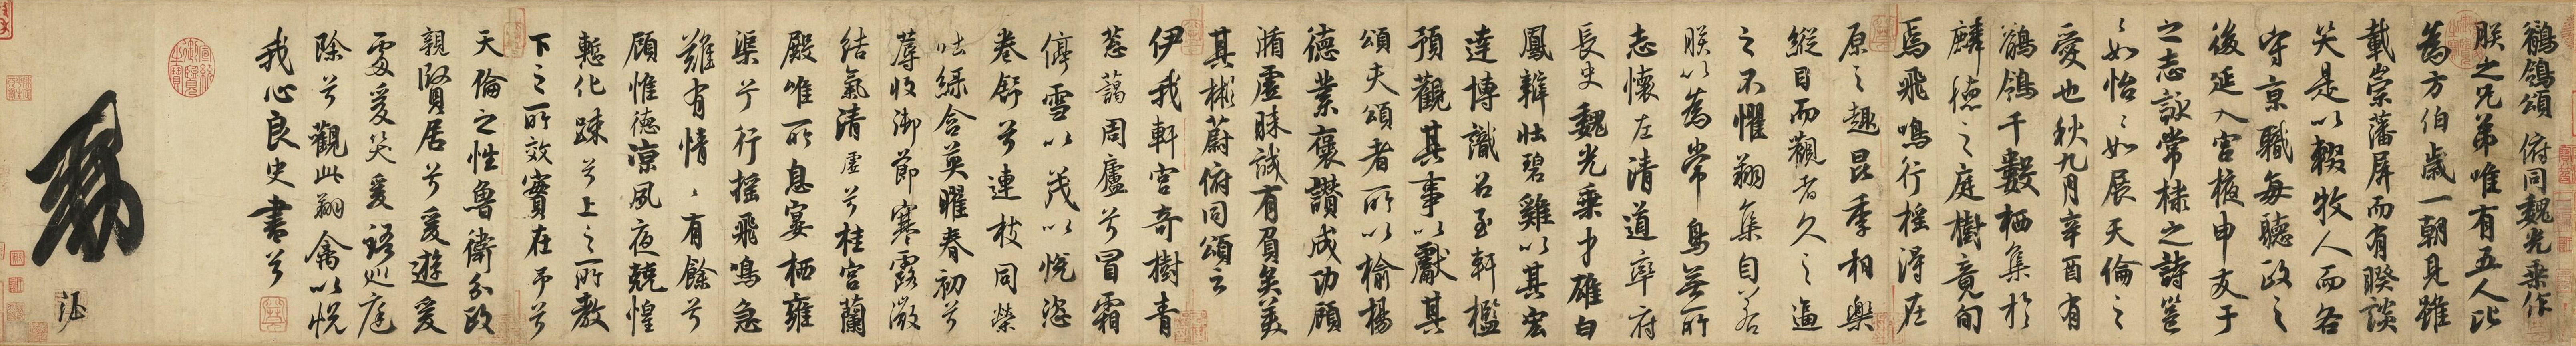 鶺鴒頌 俯同魏光乘作
朕之兄弟唯有五人比
為方伯歲一朝見雖
載崇藩屏而有睽談
笑是以輟牧人而各
守京職每聽政之
後延入宮掖申友于
之志詠常棣之詩邕
邕如怡怡如展天倫之
愛也秋九月辛酉有
鶺鴒千數栖集於
麟德之庭樹竟旬
焉飛鳴行搖得在
原之趣昆季相樂
縱目而觀者久之逼
之不懼翔集自若
朕以為常鳥無所
志懷左清道率府
長史魏光乘才雄白
鳳辯壯碧雞以其宏
達博識召至軒檻
預觀其事以獻其
頌夫頌者所以揄揚
德業褒讚成功顧
循虛昧誠有負矣美
其彬蔚俯同頌云
伊我軒宮奇樹青
蔥藹周廬兮冒霜
停雪以茂以悅恣
卷舒兮連枝同榮
吐綠含英曜春初兮
蓐收御節寒露微
結氣清虛兮桂宮蘭
殿唯所息宴栖雍
渠兮行搖飛鳴急
難有情情有餘兮
顧惟德涼夙夜兢惶
慙化疎兮上之所教
下之所效實在予兮
天倫之性魯衛分政
親賢居兮爰遊爰
處爰笑爰語巡庭
除兮觀此翔禽以悅
我心良史書兮